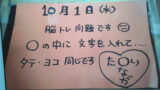 10月1日(水)
脳トレ問題です
○の中に文字を入れて....
タテ・ヨコ同じです
た○い
なが